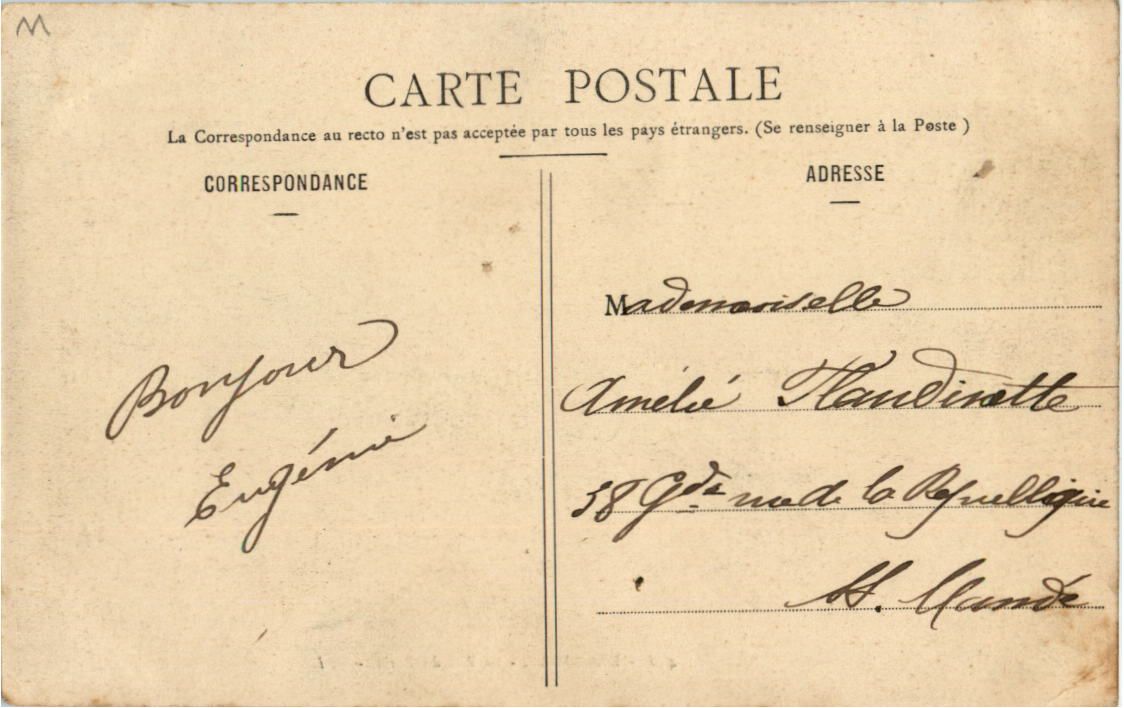 M
CARTE POSTALE
La Correspondance au recto n'est pas acceptée par tous les pays étrangers. (Se renseigner à la Poste )
CORRESPONDANCE
Bonjour
Eugénie
ADRESSE
Mademoiselle
Amélie
58 Gde rue de la République
St. Mandé